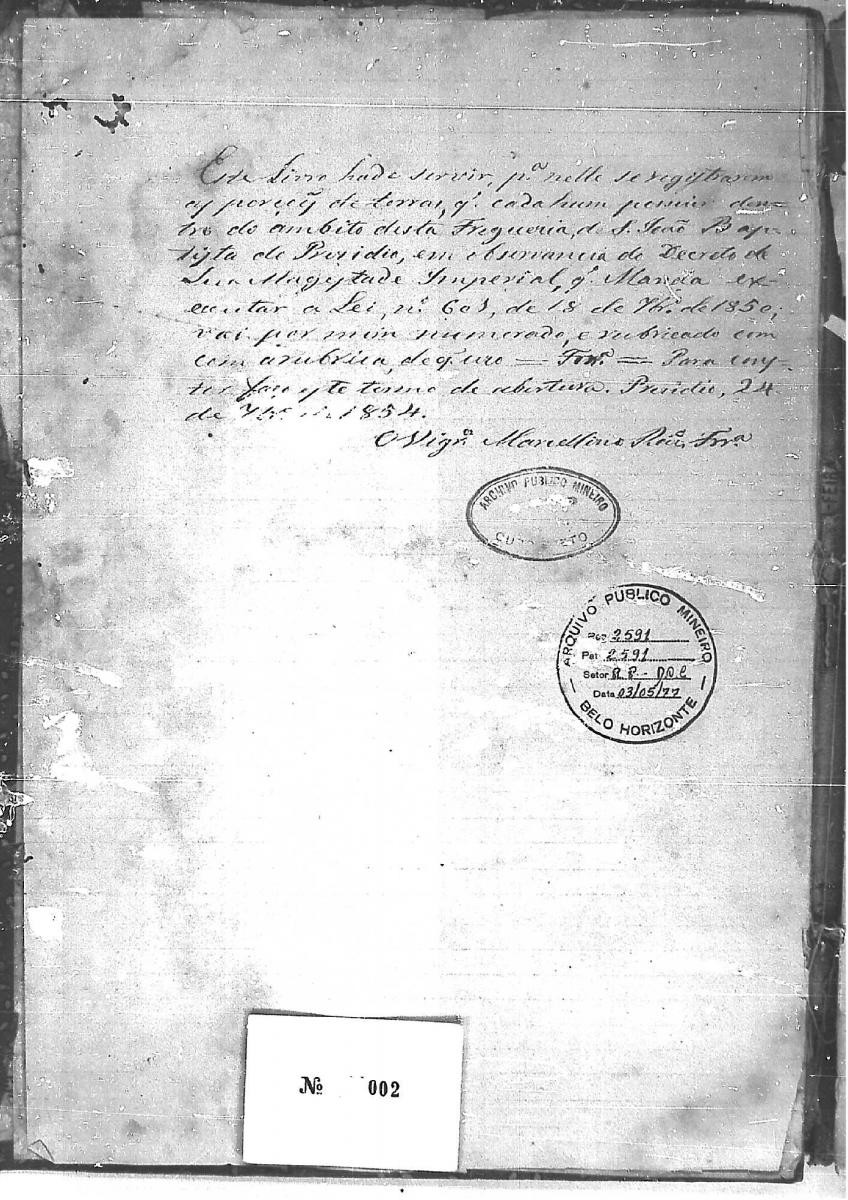 Este Livro hade servir, pª nelle se registrarem
as porções de terras, q. cada hum possuir den-
tro do ambito desta Freguesia, de S. João Bap-
tista do Presidio, em observancia do Decreto de
Sua Magestade Imperial, q. Manda ex-
ecutar a Lei, nº 601, de 18 de 7bro. de 1850;
vai por mim numerado, e rubricado com
com a rubrica, de q. uso = Frrª = Para cons-
tar faço este termo de abertura. Presidio, 24
de 7bro de 1854.
O Vigrº Marcellino Roiz Frrª
ARCHIVO PUBLICO MINEIRO
ARQUIVO PUBLICO MINEIRO
2591
Pat 2591
Setor R.P. - D.P.C
Data 03/05/77
BELO HORIZONTE
Nº 002